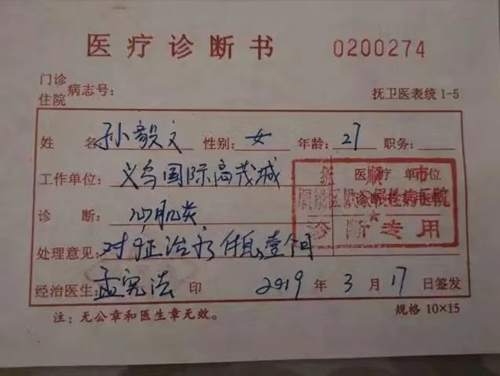 医疗诊断书 0200274
门诊
住院 病志号： 抚卫医表统 1-5
姓 名 孙毅文 性别：女 年龄：27 职务：
工作单位：义乌国际商茂城 医疗单位
诊 断：心肌炎
诊断专用
处理意见：对症治疗 休息壹个月
经治医生：孟宪法 印 2019 年 3 月 17 日签发
注：无公章和医生章无效。 规格 10×15